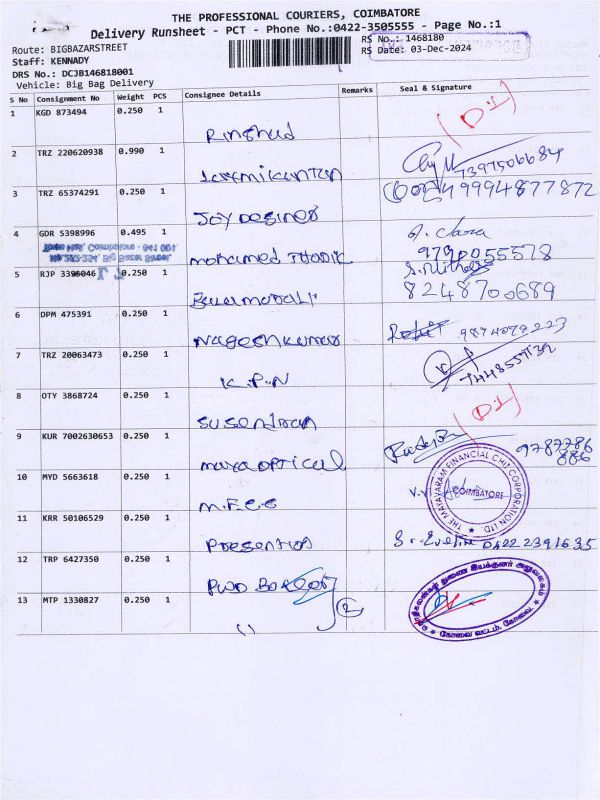 THE PROFESSIONAL COURIERS, COIMBATORE
Delivery Runsheet - PCT - Phone No.:0422-3505555 - Page No.:1
Route: BIGBAZARSTREET
RS No.: 1468180
Staff: KENNADY
RS Date: 03-Dec-2024
DRS No.: DCJB146818001
Vehicle: Big Bag Delivery
S No Consignment No Weight PCS Consignee Details Remarks Seal & Signature
1 KGD 873494 0.250 1 Rinshud (D1)
2 TRZ 220620938 0.990 1 Laxmikantan 7397506684
3 TRZ 65374291 0.250 1 Joy Desiner 9994877872
4 GDR 5398996 0.495 1 mohamed THODIK A. Clara 9790055578
Town Hall, Coimbatore - 641 001.
No.232-234, Big Bazar Street,
5 RJP 3396046 0.250 1 8248700689
6 DPM 475391 0.250 1 Nageshkumar 9874079223
7 TRZ 20063473 0.250 1 K.P.N
8 OTY 3868724 0.250 1 Susendran (D1)
9 KUR 7002630653 0.250 1 maya optical 9787786886
10 MYD 5663618 0.250 1 M.F.C.C THE MAYAVARAM FINANCIAL CHIT CORPORATION LTD. COIMBATORE
11 KRR 50106529 0.250 1 Presention Sr. Eveline 0422 2391635
12 TRP 6427350 0.250 1
13 MTP 1330827 0.250 1 " 2 கோவை வட்டம், கோவை.